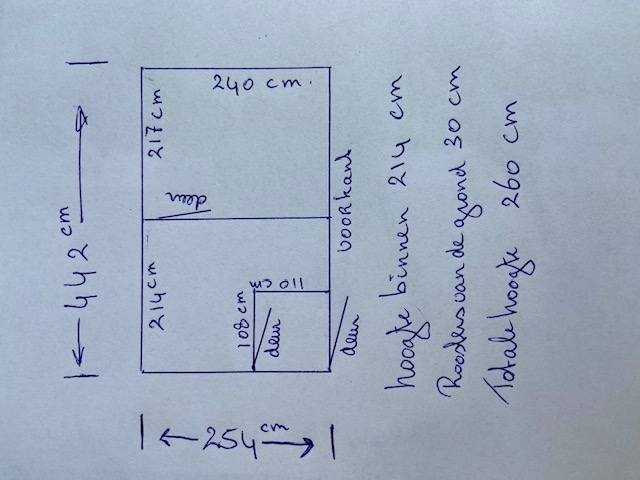 442 cm
217 cm
214 cm
240 cm.
deur
110 cm
108 cm
deur
deur
VOORKANT
254 cm
hoogte binnen 214 cm
Roosters van de grond 30 cm
Totale hoogte 260 cm